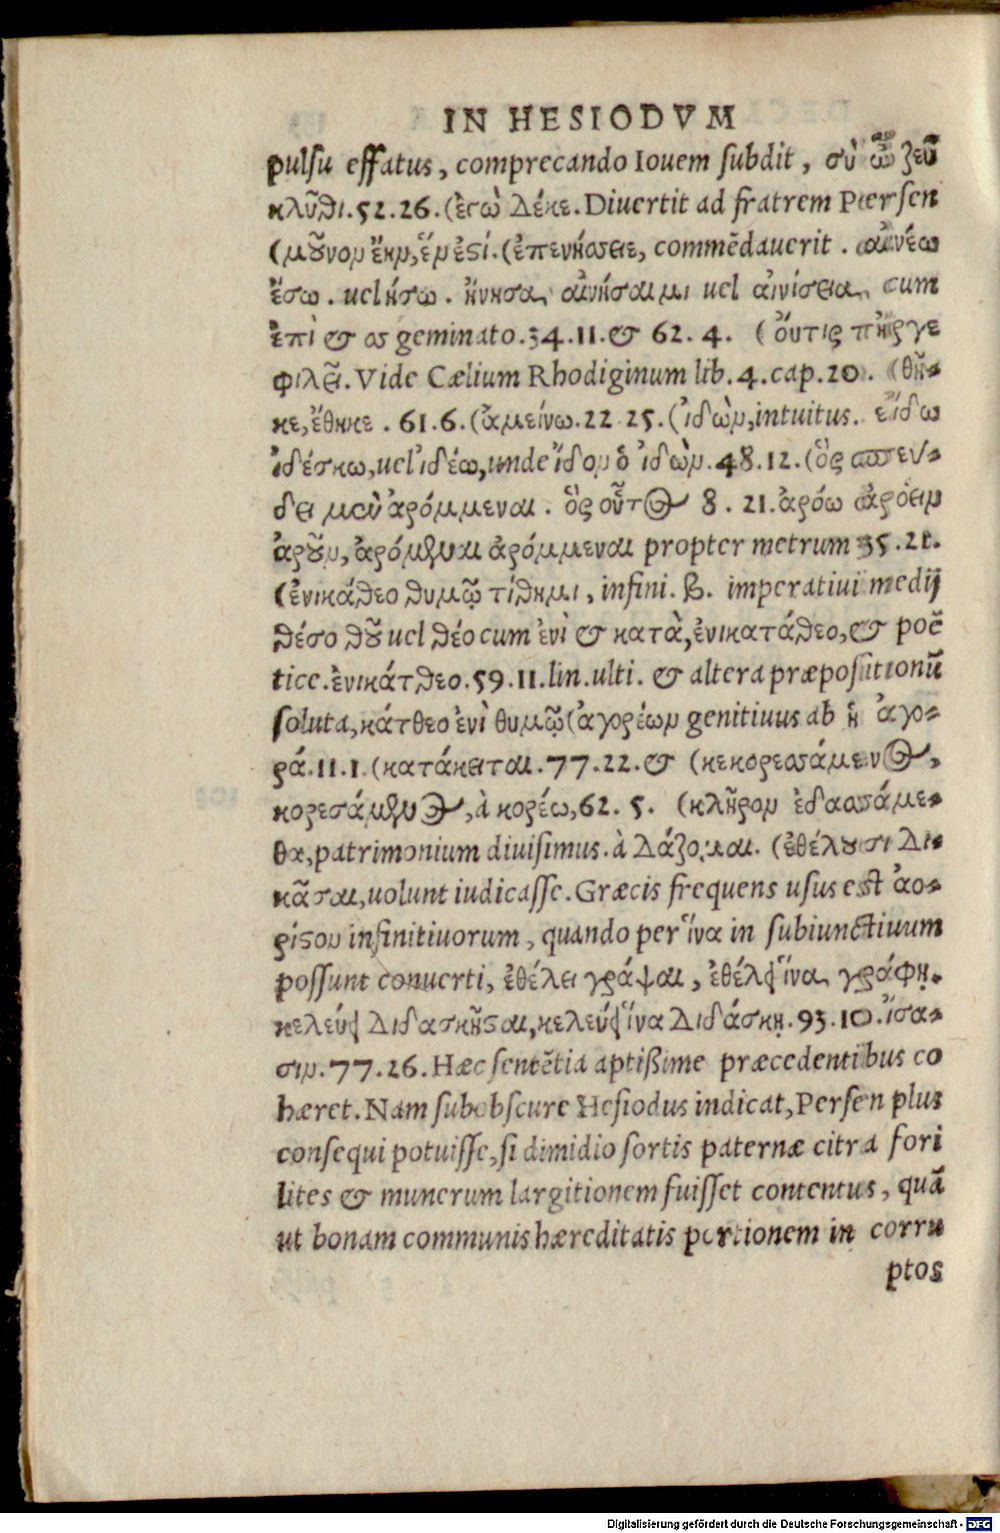 IN HESIODVM
pulsu effatus, comprecando Iouem subdit, σὺ ὦ ζεῦ
κλῦθι.52.26.(ἐγὼ Δέκε. Diuertit ad fratrem Persen
(μοῦνον ἔην, ἕν ἐστί. (ἐπενήσειε, commēdauerit. αἰνέω
ἔσω. uel ήσω. ἤνησα, αἰνήσαιμι uel αἰνίσεια, cum
ἐπὶ & σσ geminato.34.11.& 62.4. (ὄυτις τήνγε
φιλεῖ. Vide Cælium Rhodiginum lib.4.cap.20. (θῆ-
κε, ἔθηκε. 61.6.(ἀμείνω.22 25.(ἰδὼν, intuitus. εἴδω
ἰδέσκω, uel ἰδέω, unde ἴδον ὁ ἰδὼν.48.12.(ὃς σπεύ-
δει μὲν ἀρόμμεναι. ὃς οὗτος 8.21. ἀρόω ἀρόειν
ἀροῦν, ἀρόμεναι ἀρόμμεναι propter metrum 35.21.
(ἐνικάθεο θυμῷ τίθημι, infini. β. imperatiui medij
θέσο θοῦ uel θέο cum ἐνὶ & κατὰ, ἐνικατάθεο, & poë
tice. ἐνικάτθεο.59.11.lin.ulti. & altera præpositionū
soluta, κάτθεο ἐνὶ θυμῷ (ἀγορέων genitiuus ab ἡ ἀγο-
ρά.11.1.(κατάκειται.77.22.& (κεκορεσσάμενος,
κορεσάμενος, à κορέω, 62. 5. (κλῆρον ἐδασσάμε-
θα, patrimonium diuisimus. à Δάζομαι. (ἐθέλουσι Δι-
κᾶσαι, uolunt iudicasse. Græcis frequens usus est ἀο-
ρίστου infinitiuorum, quando per ἵνα in subiunctiuum
possunt conuerti, ἐθέλει γράψαι, ἐθέλω ἵνα γράφῃ.
κελεύω Διδασκῆσαι, κελεύω ἵνα Διδάσκῃ.93.10. ἴσα-
σιν.77.26. Hæc sentētia aptißime præcedentibus co
hæret. Nam subobscure Hesiodus indicat, Persen plus
consequi potuisse, si dimidio sortis paternæ citra fori
lites & munerum largitionem fuisset contentus, quā
ut bonam communis hæreditatis portionem in corru
ptos
Digitalisierung gefördert durch die Deutsche Forschungsgemeinschaft - DFG